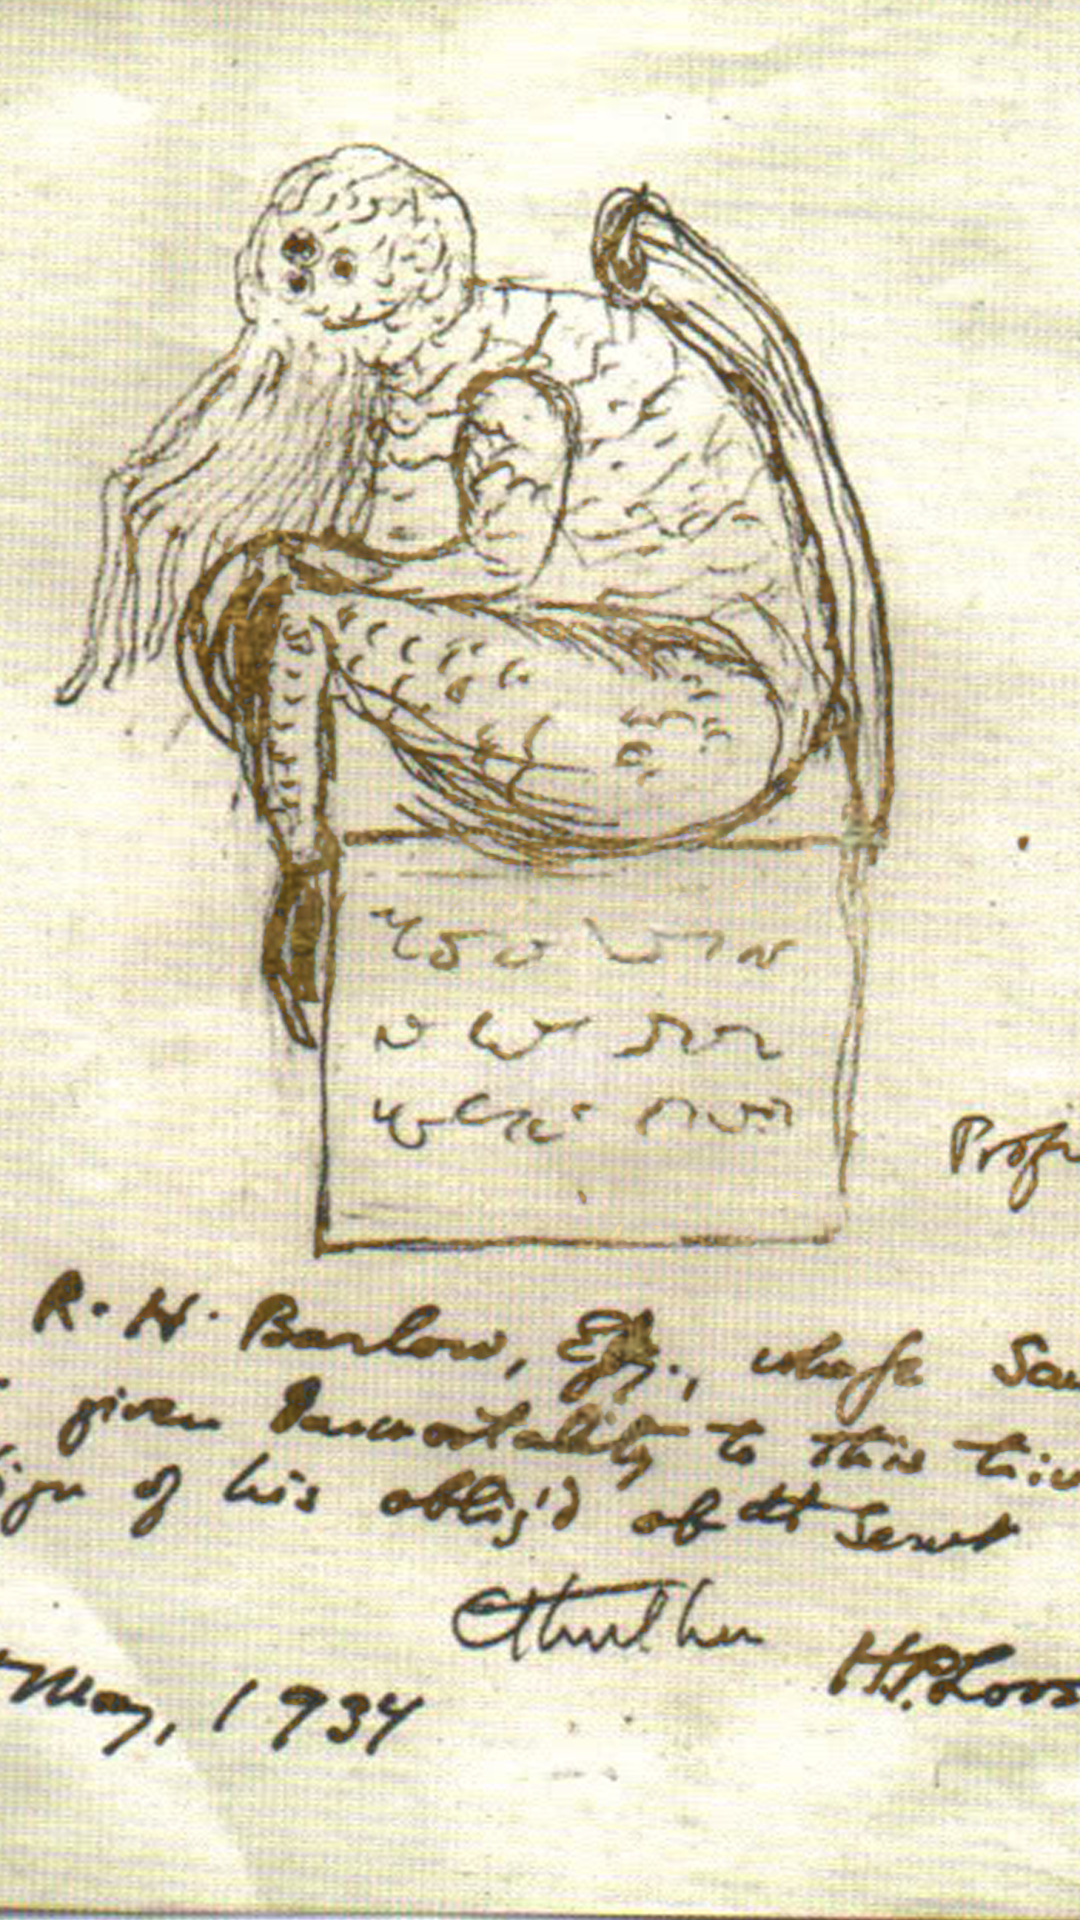 Prof
R. H. Barlow, Esq., whose
given Immortality to this
of his oblig'd obdt Servt
Cthulhu
H.P. Lov
May, 1934